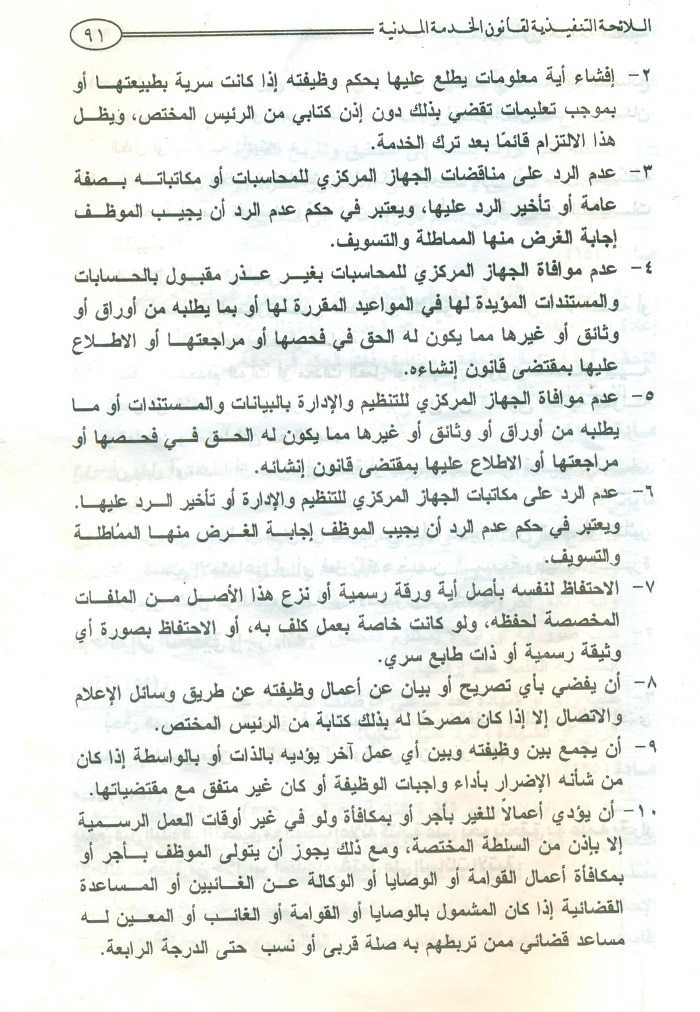 اللائحة التنفيذية لقانون الخدمة المدنية ٩١
٢- إفشاء أية معلومات يطلع عليها بحكم وظيفته إذا كانت سرية بطبيعتها أو
بموجب تعليمات تقضي بذلك دون إذن كتابي من الرئيس المختص، ويظل
هذا الالتزام قائمًا بعد ترك الخدمة.
٣- عدم الرد على مناقضات الجهاز المركزي للمحاسبات أو مكاتباته بصفة
عامة أو تأخير الرد عليها، ويعتبر في حكم عدم الرد أن يجيب الموظف
إجابة الغرض منها المماطلة والتسويف.
٤- عدم موافاة الجهاز المركزي للمحاسبات بغير عذر مقبول بالحسابات
والمستندات المؤيدة لها في المواعيد المقررة لها أو بما يطلبه من أوراق أو
وثائق أو غيرها مما يكون له الحق في فحصها أو مراجعتها أو الاطلاع
عليها بمقتضى قانون إنشاءه.
٥- عدم موافاة الجهاز المركزي للتنظيم والإدارة بالبيانات والمستندات أو ما
يطلبه من أوراق أو وثائق أو غيرها مما يكون له الحق في فحصها أو
مراجعتها أو الاطلاع عليها بمقتضى قانون إنشائه.
٦- عدم الرد على مكاتبات الجهاز المركزي للتنظيم والإدارة أو تأخير الرد عليها.
ويعتبر في حكم عدم الرد أن يجيب الموظف إجابة الغرض منها المماطلة
والتسويف.
٧- الاحتفاظ لنفسه بأصل أية ورقة رسمية أو نزع هذا الأصل من الملفات
المخصصة لحفظه، ولو كانت خاصة بعمل كلف به، أو الاحتفاظ بصورة أي
وثيقة رسمية أو ذات طابع سري.
٨- أن يفضي بأي تصريح أو بيان عن أعمال وظيفته عن طريق وسائل الإعلام
والاتصال إلا إذا كان مصرحًا له بذلك كتابة من الرئيس المختص.
٩- أن يجمع بين وظيفته وبين أي عمل آخر يؤديه بالذات أو بالواسطة إذا كان
من شأنه الإضرار بأداء واجبات الوظيفة أو كان غير متفق مع مقتضياتها.
١٠- أن يؤدي أعمالاً للغير بأجر أو بمكافأة ولو في غير أوقات العمل الرسمية
إلا بإذن من السلطة المختصة، ومع ذلك يجوز أن يتولى الموظف بأجر أو
بمكافأة أعمال القوامة أو الوصايا أو الوكالة عن الغائبين أو المساعدة
القضائية إذا كان المشمول بالوصايا أو القوامة أو الغائب أو المعين له
مساعد قضائي ممن تربطهم به صلة قربى أو نسب حتى الدرجة الرابعة.